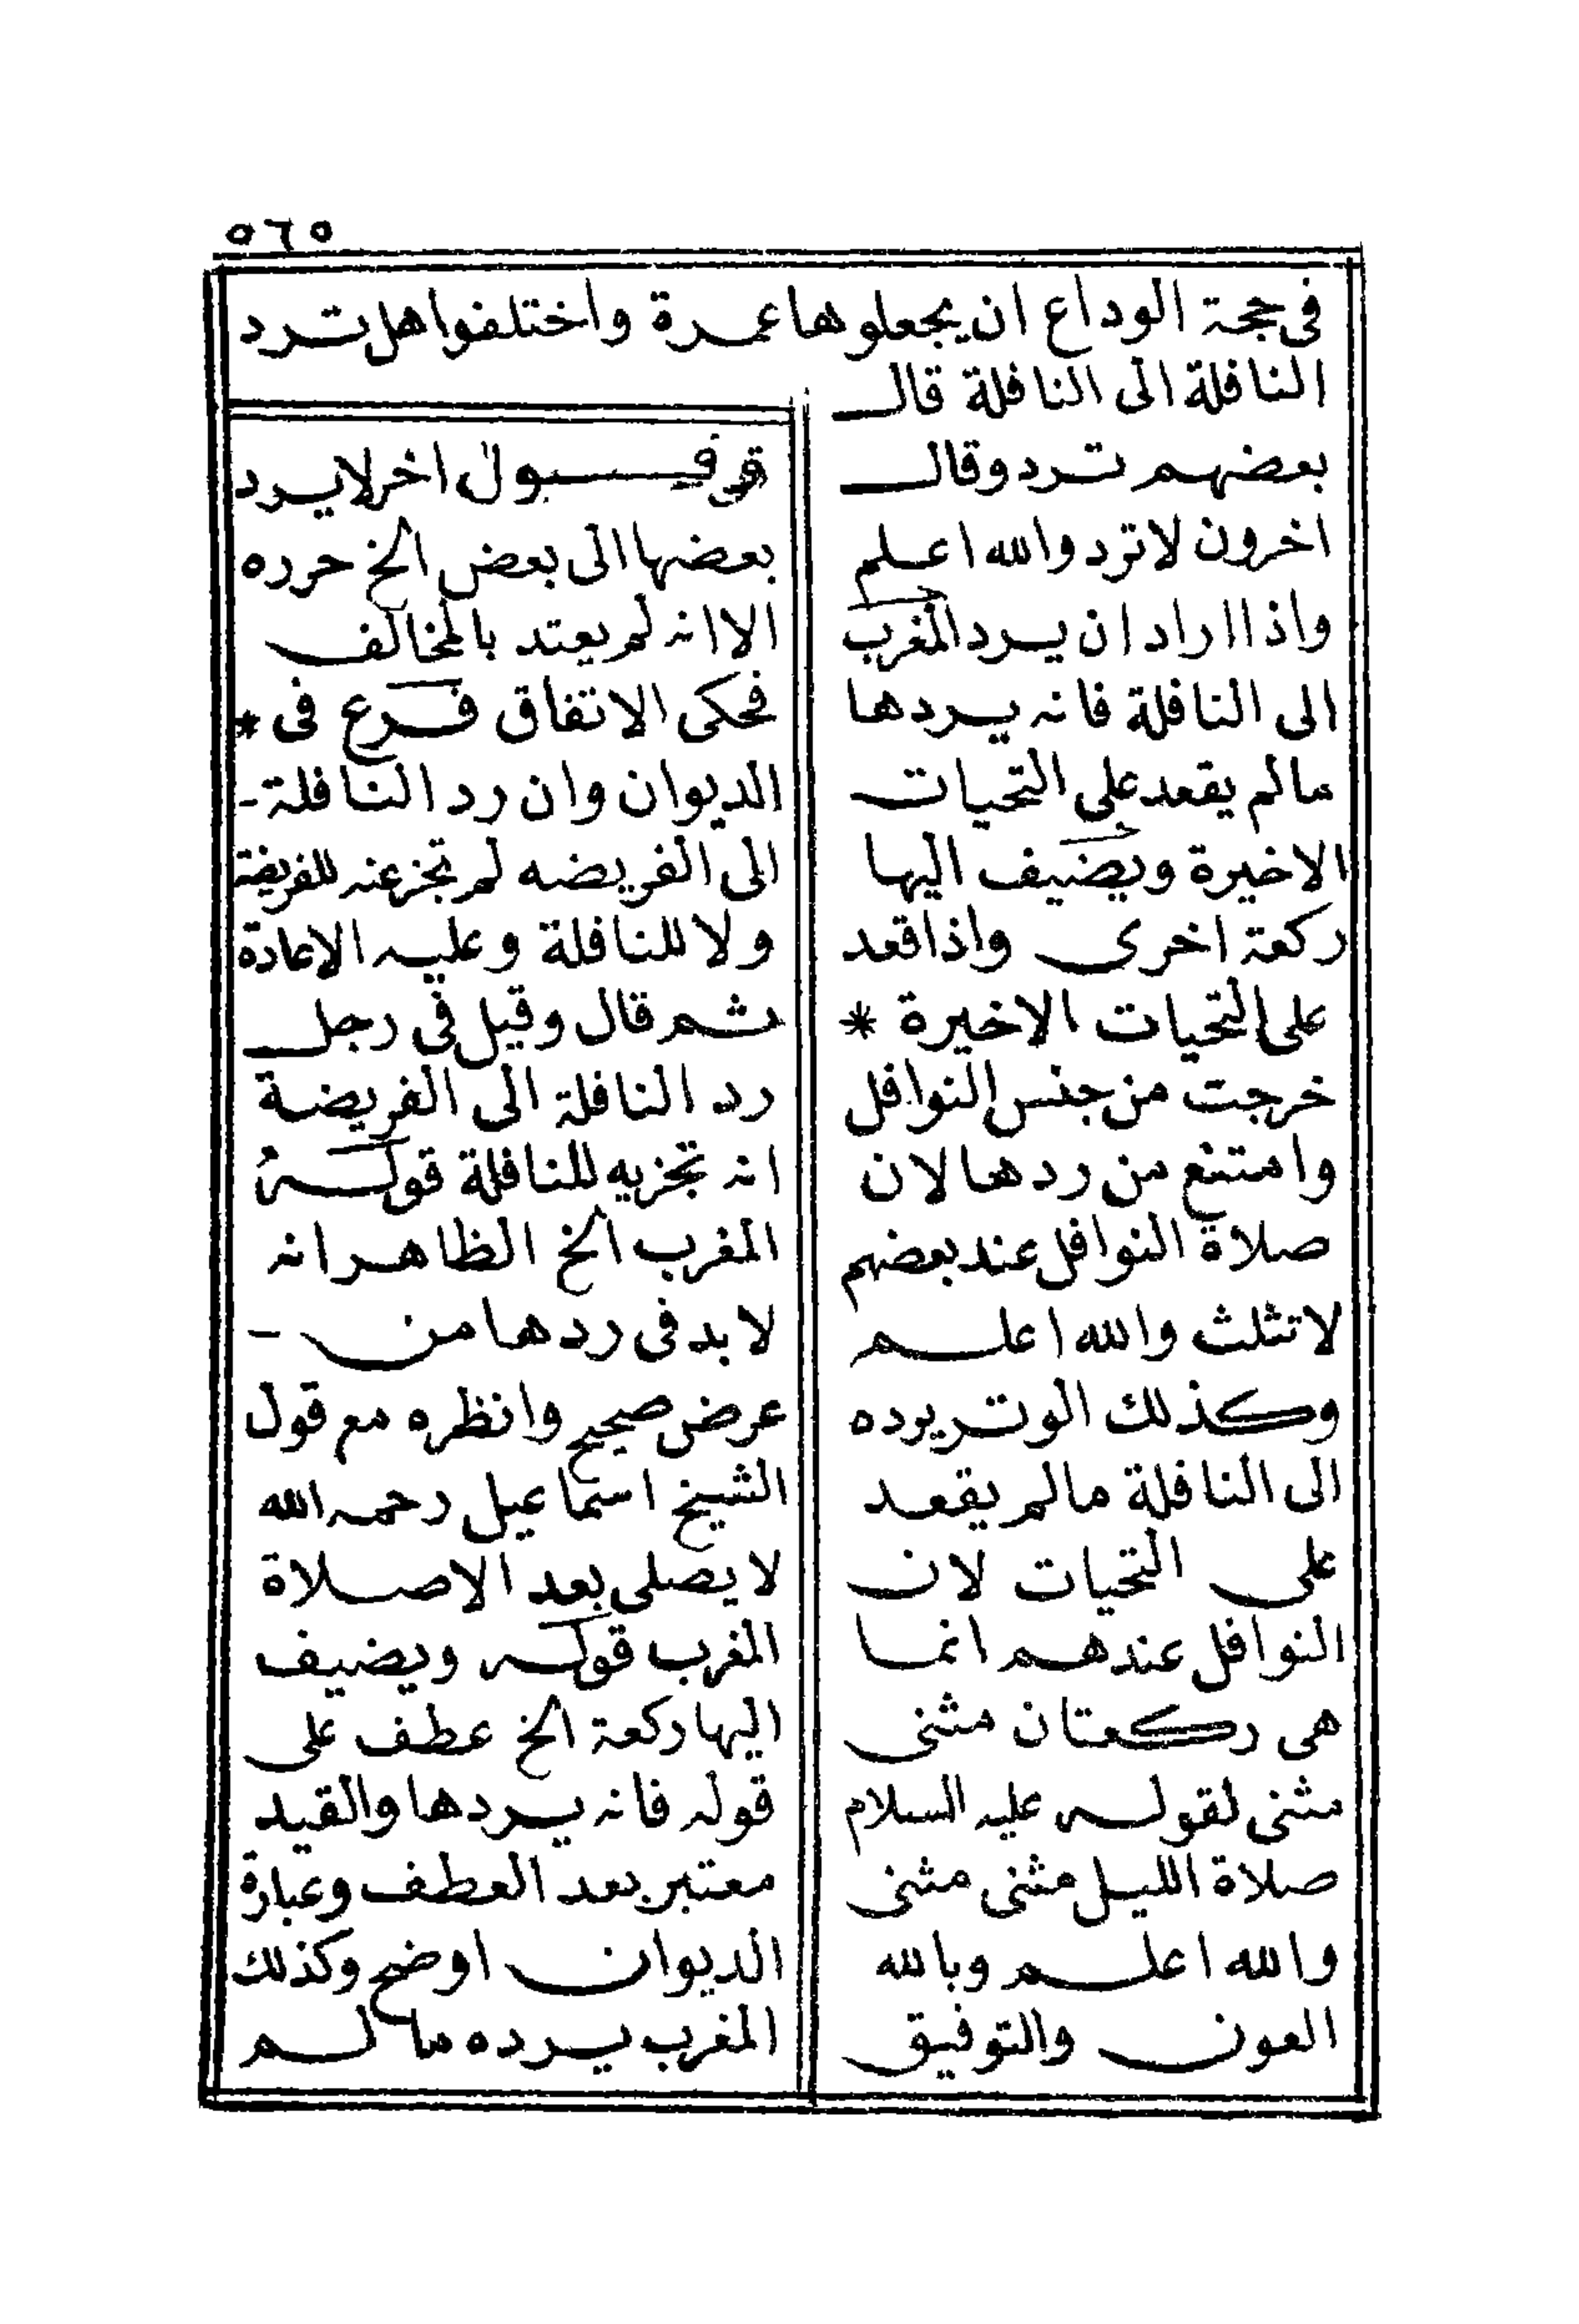 ٥٦٥
فى حجة الوداع ان يجعلوها عمرة واختلفوا هل ترد
النافلة الى النافلة قال
بعضهم ترد وقال
اخرون لا ترد والله اعلم
واذا اراد ان يرد المغرب
الى النافلة فانه يردها
مالم يقعد على التحيات
الاخيرة ويضيف اليها
ركعة اخرى واذا قعد
على التحيات الاخيرة *
خرجت من جنس النوافل
وامتنع من ردها لان
صلاة النوافل عند بعضهم
لا تثلث والله اعلم
وكذلك الوتر يرده
الى النافلة مالم يقعد
على التحيات لان
النوافل عندهم انما
هى ركعتان مثنى
مثنى لقوله عليه السلام
صلاة الليل مثنى مثنى
والله اعلم وبالله
العون والتوفيق
اخر لا يرد
بعضها الى بعض الخ حرره
الا انه لم يعتد بالمخالف
فحكى الاتفاق فرع فى *
الديوان وان رد النافلة -
الى الفريضه لم تجز عنه للفريضة
ولا للنافلة وعليه الاعادة
ثم قال وقيل فى رجل
رد النافلة الى الفريضة
انه تجزيه للنافلة قولهُ
المغرب الخ الظاهر انه
لا بد فى ردها من -
عرض صحيح وانظره مع قول
الشيخ اسماعيل رحمه الله
لا يصلى بعد الاصلاة
المغرب قوله ويضيف
اليها ركعة الخ عطف على
قوله فانه يردها والقيد
معتبر بعد العطف وعبارة
الديوان اوضح وكذلك
المغرب يرده مالم